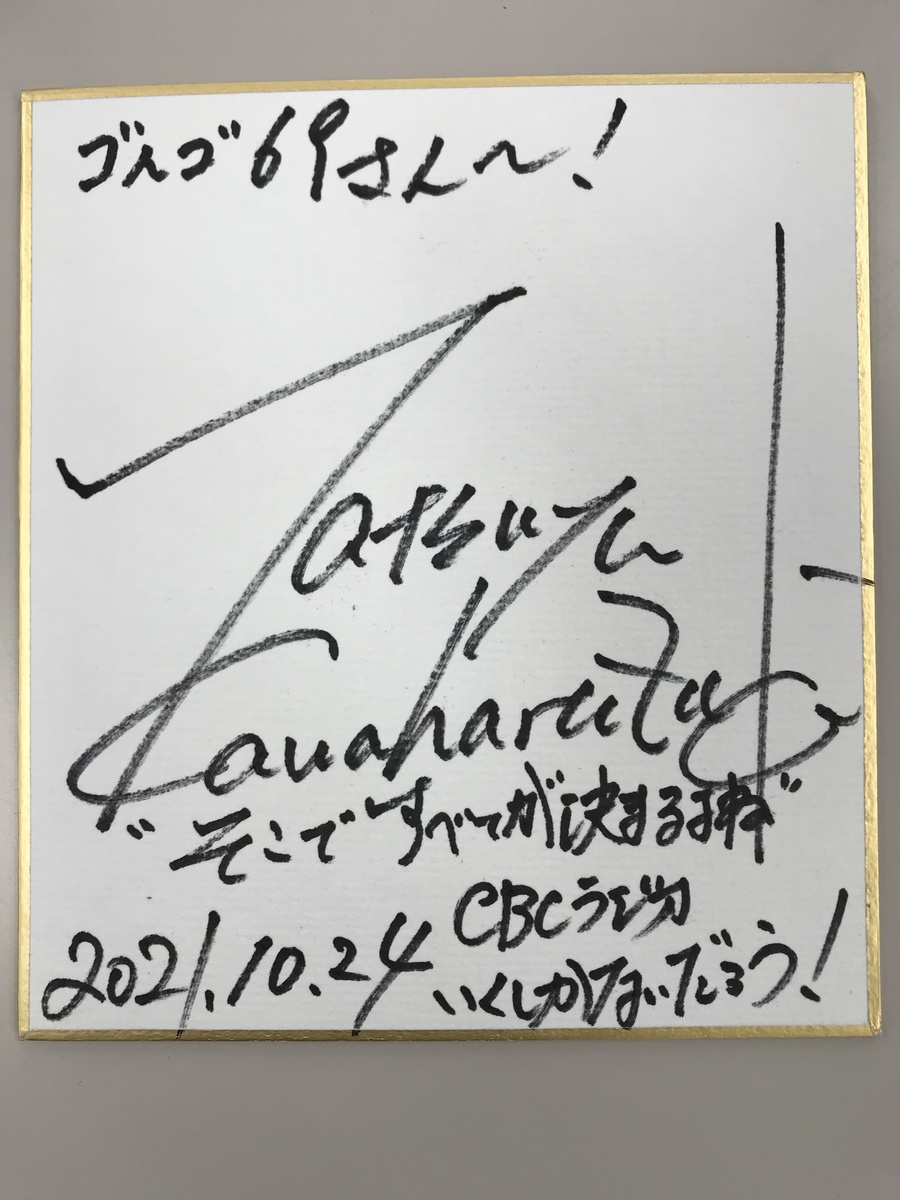 ゴルゴ69さんへ!
Tatsuya
Kawaharazaki
"そこですべてが決まる"
CBCラジオ
2021.10.24 いくしかないだろう!